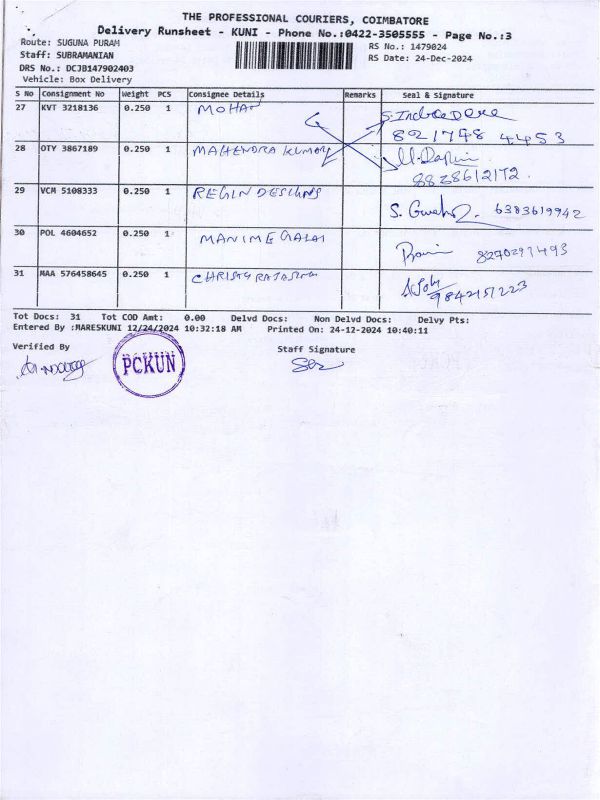 THE PROFESSIONAL COURIERS, COIMBATORE
Delivery Runsheet - KUNI - Phone No.:0422-3505555 - Page No.:3
Route: SUGUNA PURAM RS No.: 1479024
Staff: SUBRAMANIAN RS Date: 24-Dec-2024
DRS No.: DCJB147902403
Vehicle: Box Delivery
S No Consignment No Weight PCS Consignee Details Remarks Seal & Signature
27 KVT 3218136 0.250 1 MOHAN
821748 4453
28 OTY 3867189 0.250 1 MAHENDRA KUMAR
8838612172
29 VCM 5108333 0.250 1 REGIN DESIGNS
6383619942
30 POL 4604652 0.250 1 MANIMEGALAI
8270291493
31 MAA 576458645 0.250 1
9842151223
Tot Docs: 31 Tot COD Amt: 0.00 Delvd Docs: Non Delvd Docs: Delvy Pts:
Entered By :MARESKUNI 12/24/2024 10:32:18 AM Printed On: 24-12-2024 10:40:11
Verified By Staff Signature
PCKUN